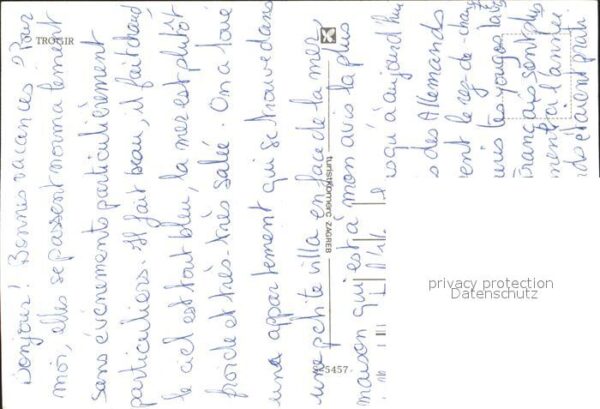 TROGIR
Bonjour! Bonnes vacances? Pour
moi, elles se passent normalement
sans événements particulièrement
particuliers. Il fait beau, il fait chaud
le ciel est tout bleu, la mer est plutôt
froide et très-très salée. On a loué
una appartement qui se trouve dans
une petite villa en face de la mer
maison qui est à mon avis la plus
squ'à aujourd'hui
s des Allemands
ent le rez-de-chau
uis les yougos
Français sont plus
ment à l'année
ds étaient
turistkomerc ZAGREB
5457
privacy protection
Datenschutz